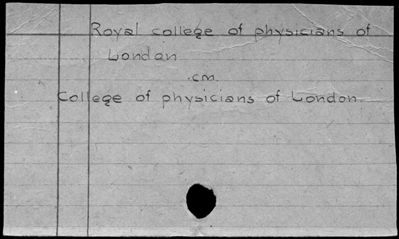 Royal college of physicians of
London
.cm.
College of physicians of London.